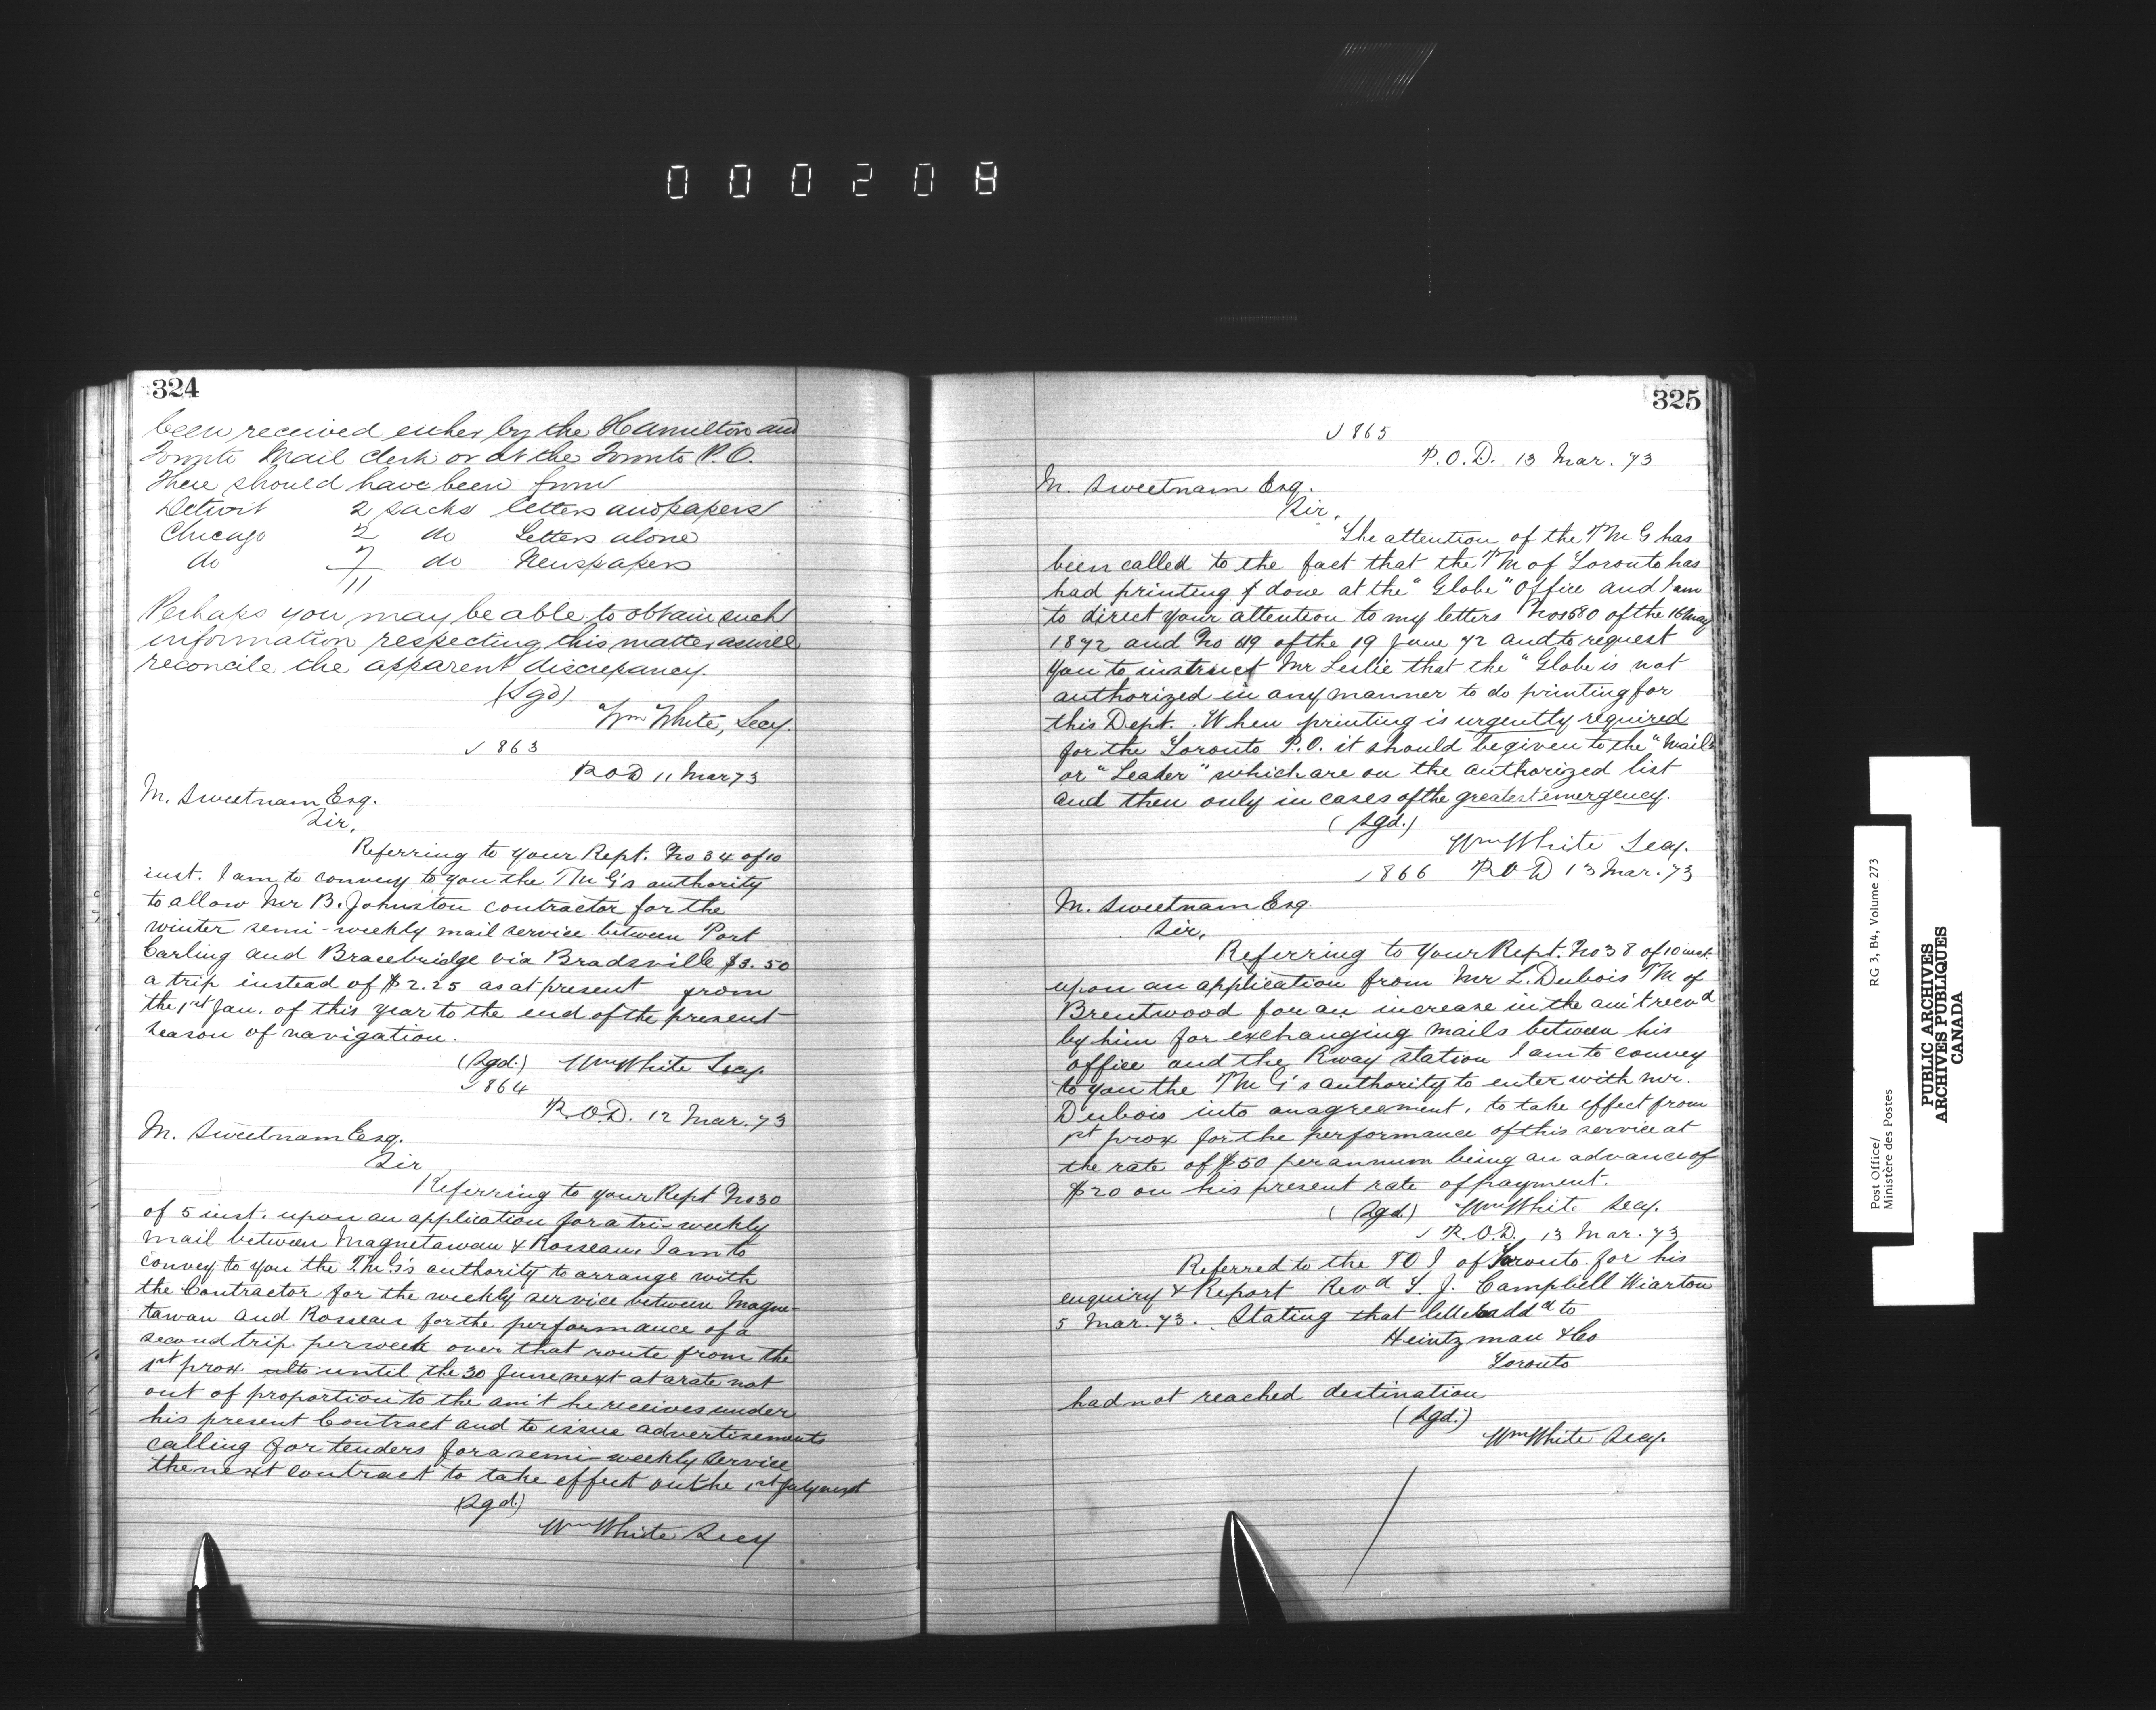 000208
324
been received either by the Hamilton and
Toronto Mail Clerk or at the Toronto P.O.
There should have been from
Detroit 2 sacks letters and papers
Chicago 2 do Letters alone
do 7 do Newspapers
11
Perhaps you may be able to obtain such
information respecting this matter as will
reconcile the apparent discrepancy.
(Sgd)
Wm White, Secy.
√ 863
P.O.D 11 Mar 73
M. Sweetnam Esq.
Sir,
Referring to your Rept. No 34 of 10
inst. I am to convey to you the PMG's authority
to allow Mr B. Johnston contractor for the
winter semi-weekly mail service between Port
Carling and Bracebridge via Bradsville $3.50
a trip instead of $2.25 as at present from
the 1st Jan. of this year to the end of the present
season of navigation.
(Sgd.) Wm White Secy.
√ 864
P.O.D. 12 Mar. 73
M. Sweetnam Esq.
Sir
Referring to your Rept No 30
of 5 inst. upon an application for a tri-weekly
mail between Magnetawan & Rosseau, I am to
convey to you the P.M.G's authority to arrange with
the Contractor for the weekly service between Magne-
tawan and Rosseau for the performance of a
second trip per week over that route from the
1st prox until the 30 June next at a rate not
out of proportion to the am't he receives under
his present Contract and to issue advertisements
calling for tenders for a semi-weekly service
the next contract to take effect on the 1st July next
(Sgd.)
Wm White Secy
325
√ 865
P.O.D. 13 Mar. 73
M. Sweetnam Esq.
Sir,
The attention of the PMG has
been called to the fact that the PM of Toronto has
had printing & done at the "Globe" Office and I am
to direct your attention to my letters Nos 680 of the 16 May
1872 and No 119 of the 19 June 72 and to request
you to instruct Mr Leslie that the "Globe is not
authorized in any manner to do printing for
this Dept. When printing is urgently required
for the Toronto P.O. it should be given to the "Mail"
or "Leader" which are on the authorized list
and then only in cases of the greatest emergency.
(Sgd.)
Wm White Secy.
√ 866 P.O.D 13 Mar. 73
M. Sweetnam Esq.
Sir,
Referring to your Rept. No 38 of 10 inst.
upon an application from Mr L. Dubois PM of
Brentwood for an increase in the am't recvd
by him for exchanging mails between his
office and the Rway station I am to convey
to you the PMG's authority to enter with Mr.
Dubois into an agreement, to take effect from
1st prox for the performance of this service at
the rate of $50 per annum being an advance of
$20 on his present rate of payment.
(Sgd) Wm White Secy.
√ P.O.D. 13 Mar. 73
Referred to the POI of Toronto for his
enquiry & Report Revd T. J. Campbell Wiarton
5 Mar. 73. Stating that letter addd to
Heintzman & Co
Toronto
had not reached destination
(Sgd.)
Wm White Secy.
Post Office/
Ministère des Postes
RG 3, B4, Volume 273
PUBLIC ARCHIVES
ARCHIVES PUBLIQUES
CANADA